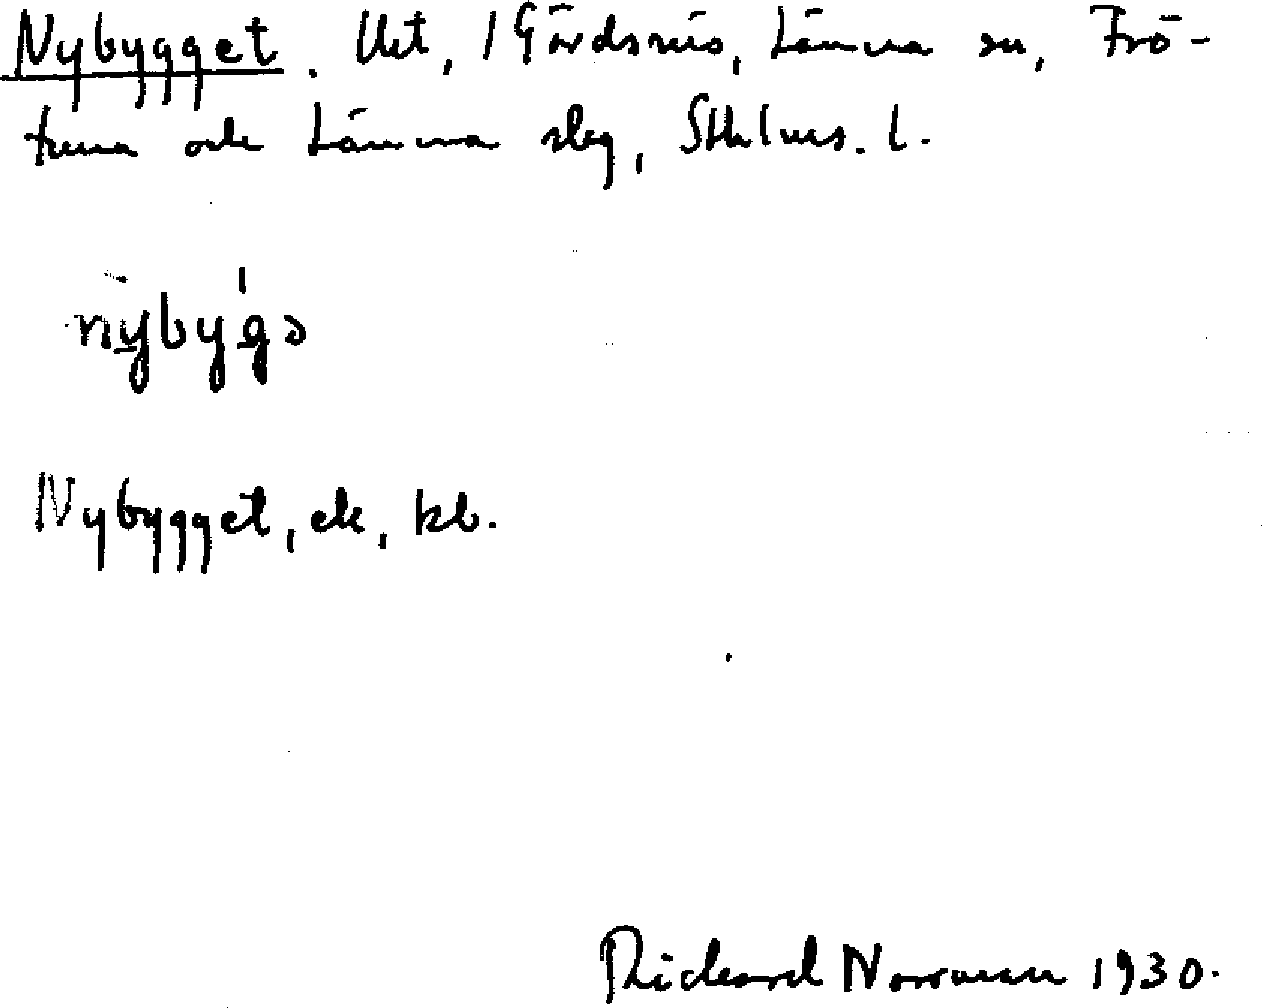 Nybygget. 1 Gärdsnäs, Länna sn, Frö-
tuna och Länna slag, Sthlms. l.
nybygə
Nybygget, ek, kb.
Richard Norrman 1930.